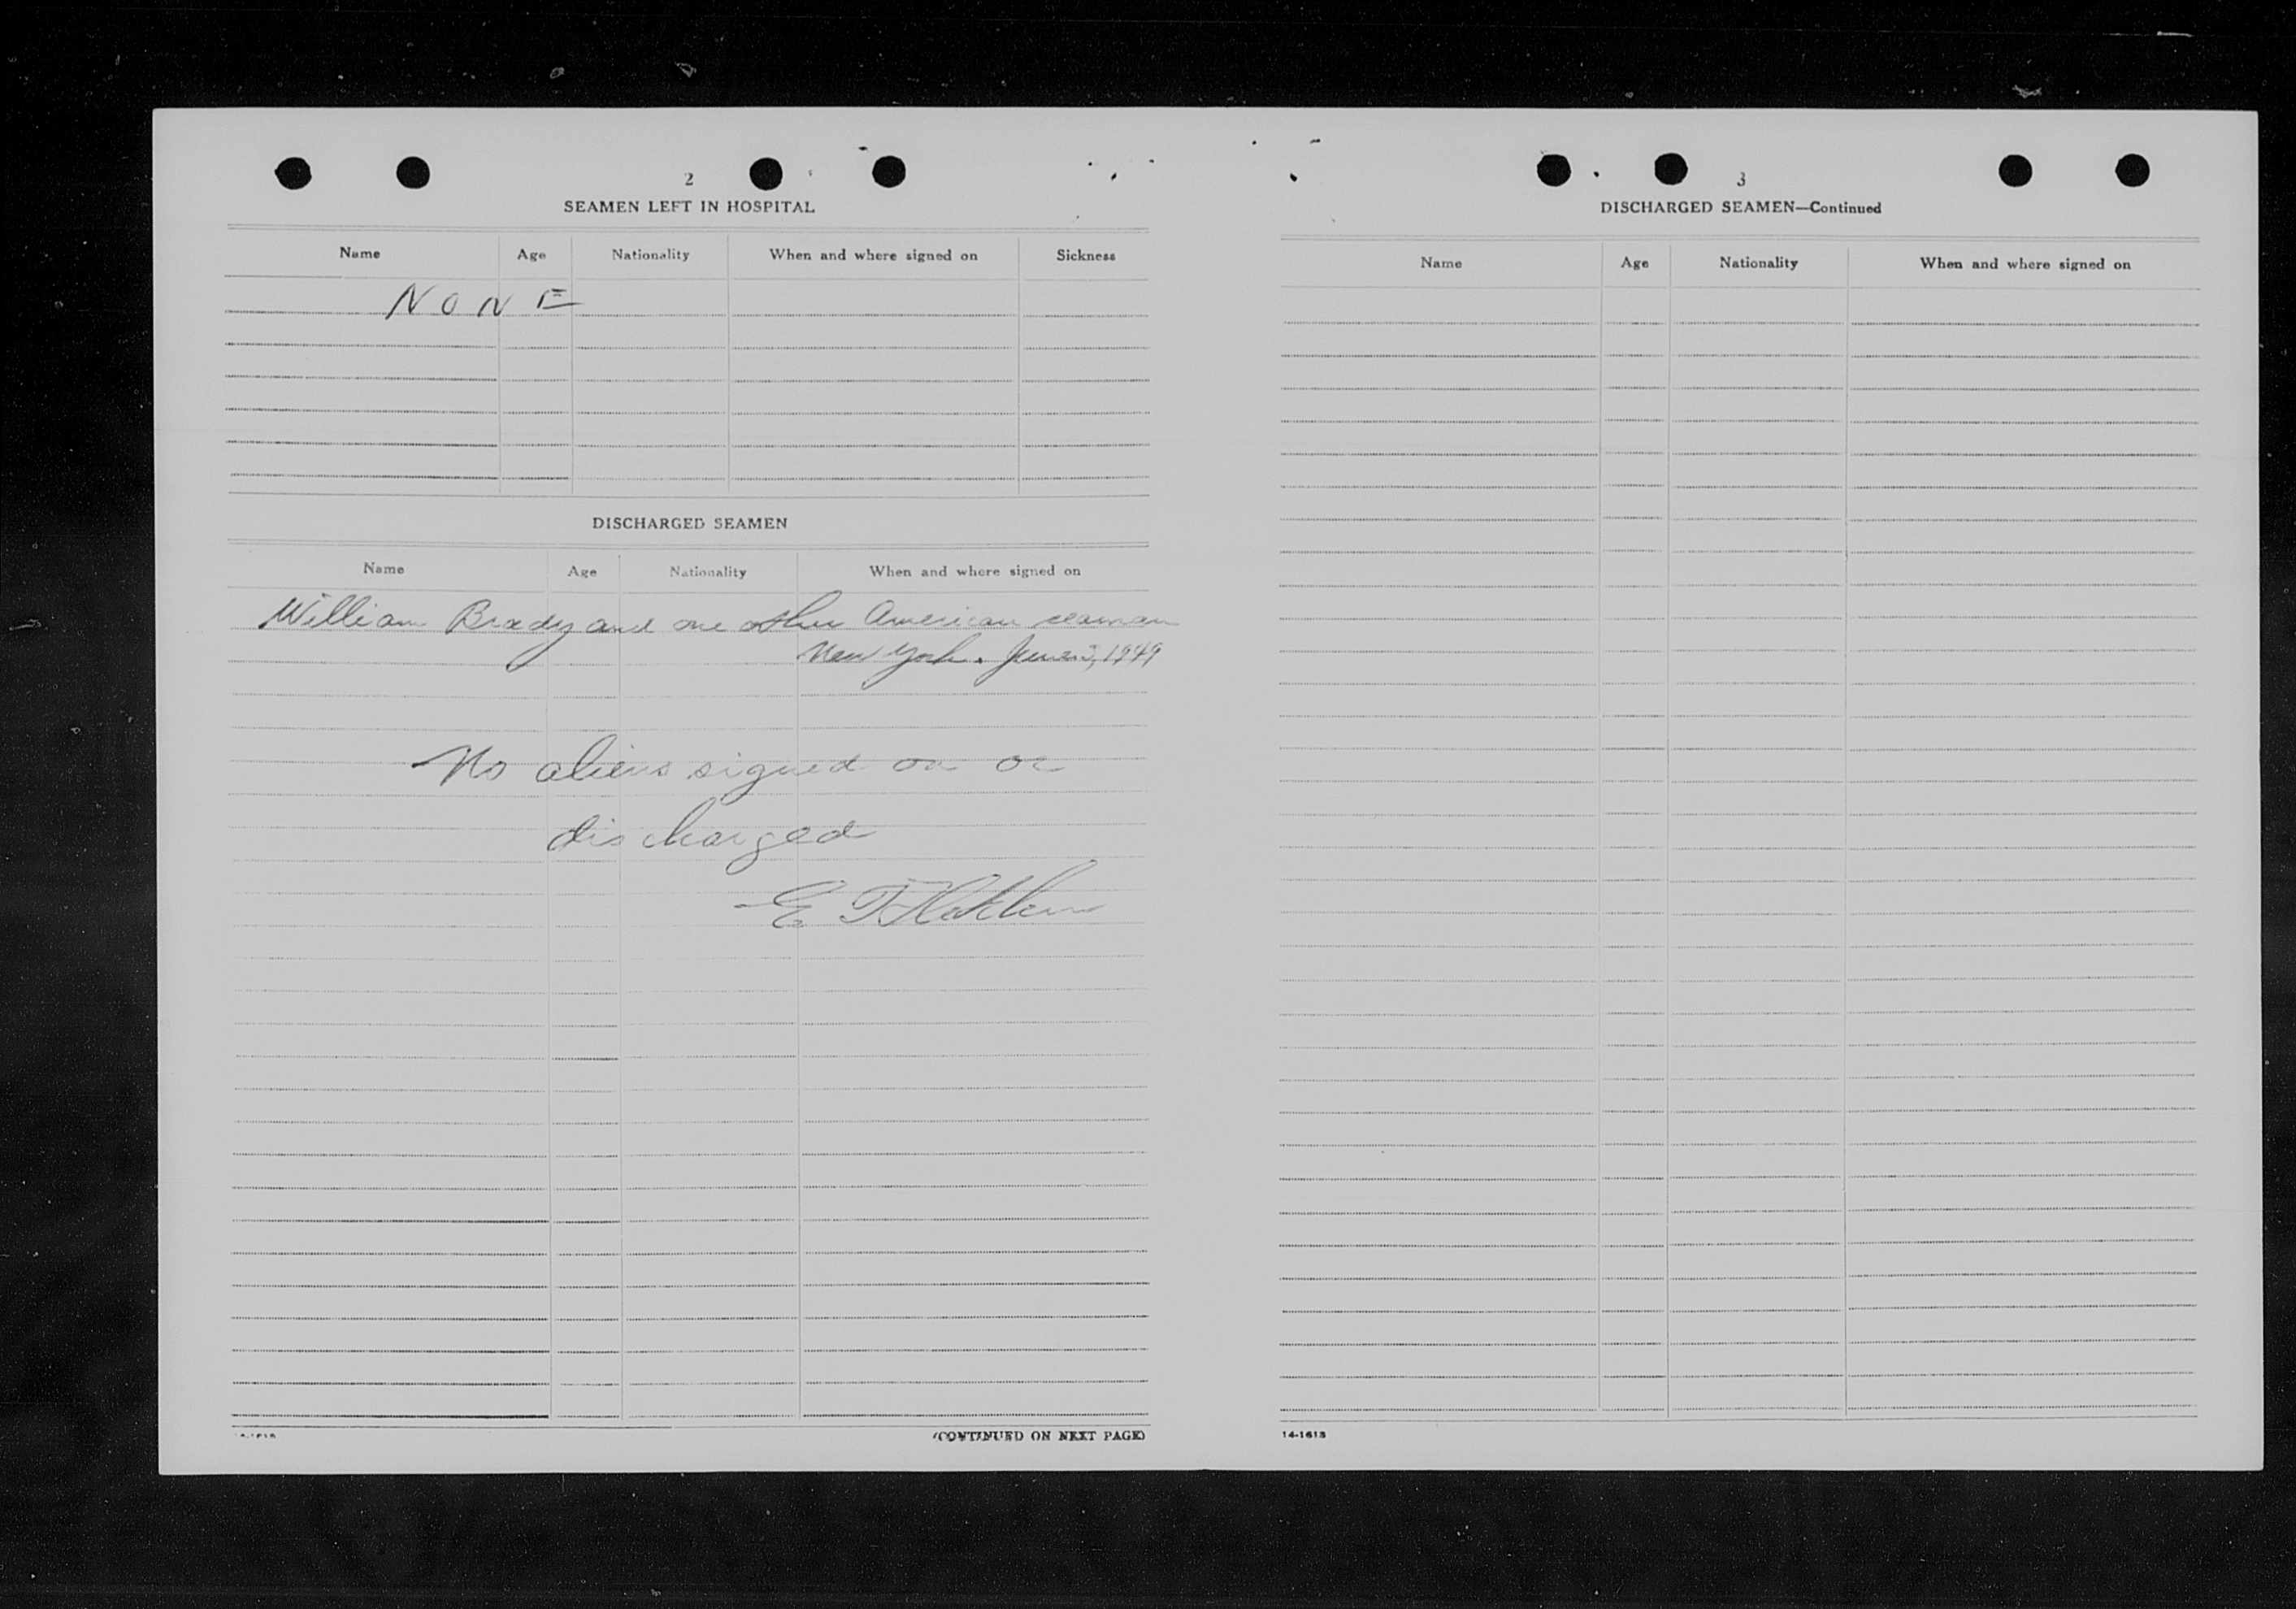 2
SEAMEN LEFT IN HOSPITAL
Name Age Nationality When and where signed on Sickness
NONE
DISCHARGED SEAMEN
Name Age Nationality When and where signed on
William Brady and one other American seaman
New York. June 3, 1949
No aliens signed on or
discharged
E
(CONTINUED ON NEXT PAGE)
3
DISCHARGED SEAMEN—Continued
Name Age Nationality When and where signed on
14-1613